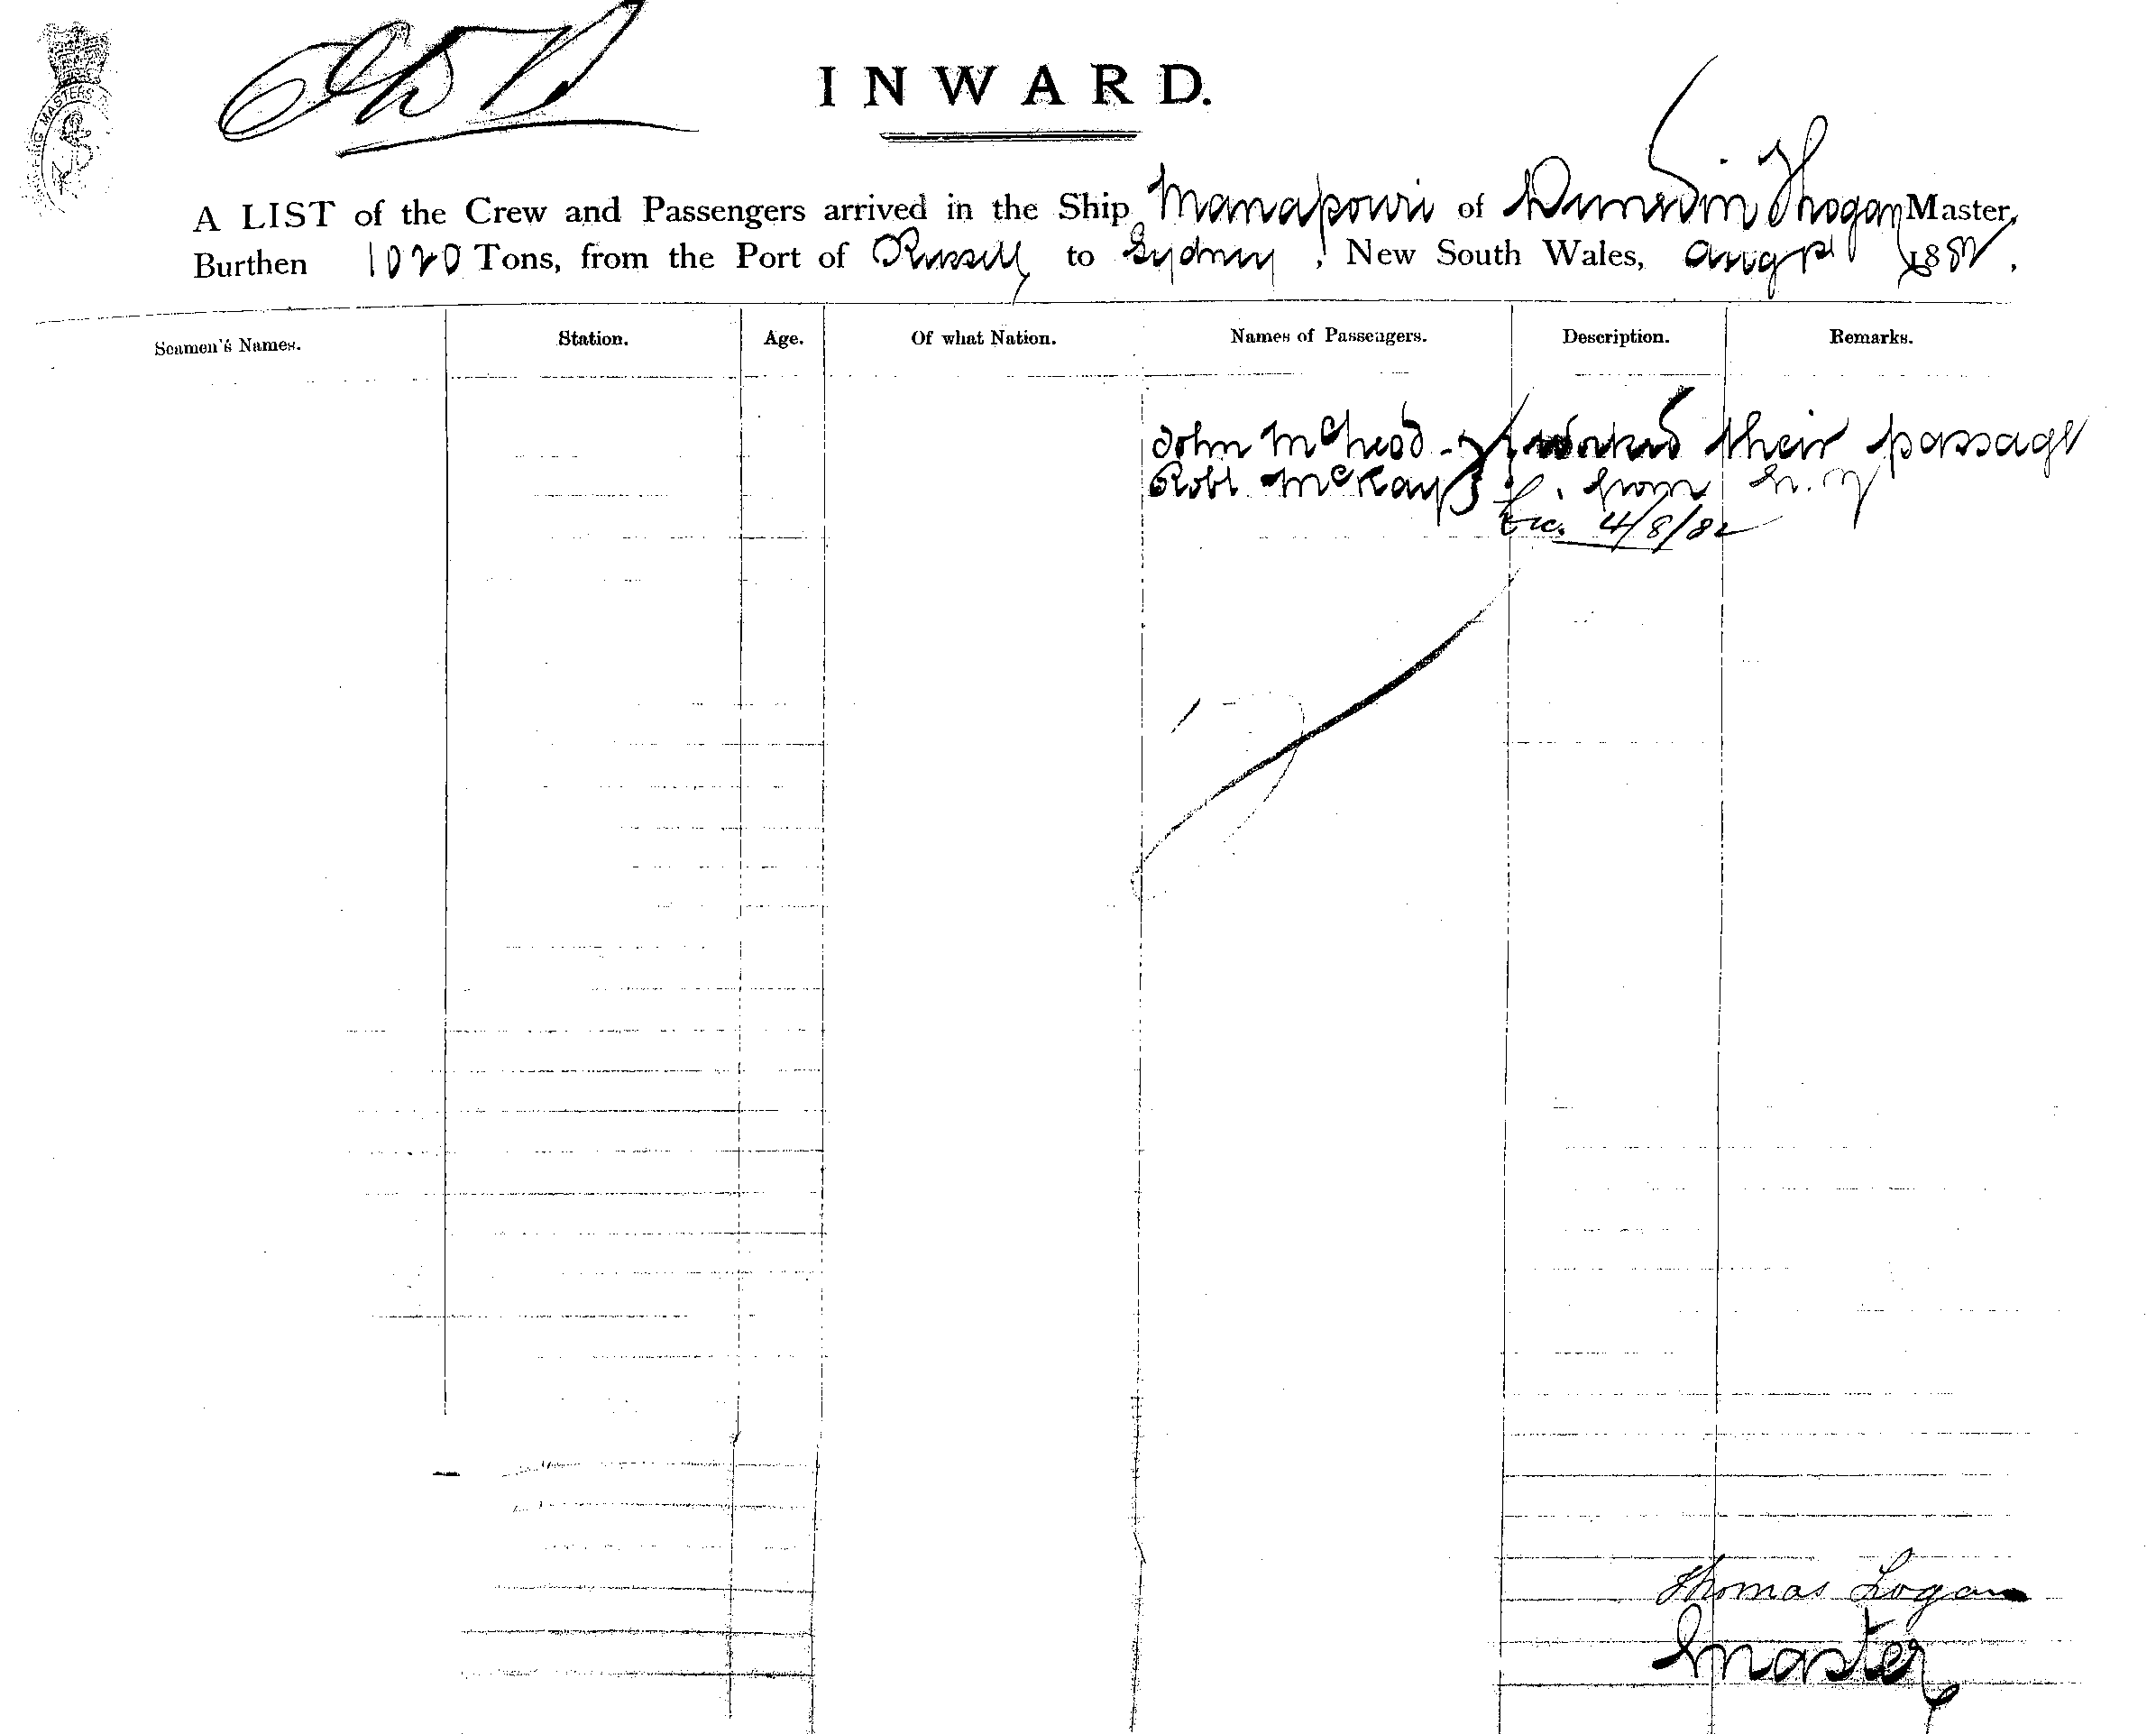 INWARD.
A LIST of the Crew and Passengers arrived in the Ship Manapouri of Dunedin Logan Master,
Burthen 1020 Tons, from the Port of Russell to Sydney, New South Wales, Augst 1882.
Seamen's Names. Station. Age. Of what Nation. Names of Passengers. Description. Remarks.
John McLeod worked their passage
Robt McKay from N.Z
4/8/82
Thomas Logan
Master